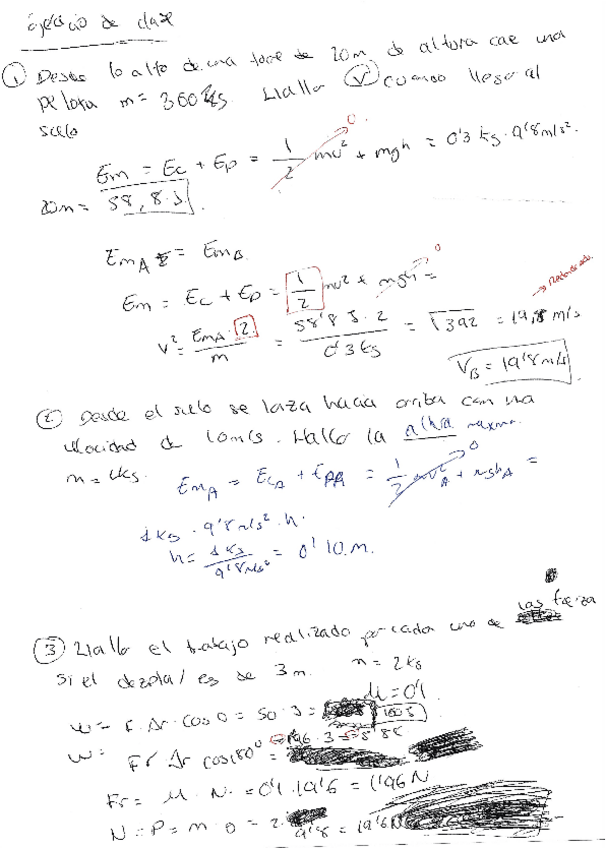 ejercicio de clase
① Desde lo alto de una torre de 20m de altura cae una
pelota m= 300 Hallo V cuando llega al
suelo
0
Em = Ec + Ep = 1/2 mv² + mgh = 0'3 kg · 9'8 m/s².
20m = 58,8 J.
EmA = EmB
0
Em = Ec + Ep = 1/2 mv² + mgh =
→ Redondeado
V² = EmA · 2 / m = 58'8 J · 2 / 0'3 kg = √392 = 19,8 m/s
VB = 19'8 m/s
② Desde el suelo se lanza hacia arriba con una
velocidad de 10m/s. Hallo la altura maxima.
m = 1kg.
0
EmA = EcA + EpA = 1/2 mv²A + mghA =
1 kg · 9'8 m/s² · h.
h = 1 kg / 9'8 m/s² = 0'10 m.
③ Hallo el trabajo realizado por cada uno de las fuerza
Si el despla/ es de 3m. m = 2kg
μ = 0'1
W = F · Δr · cos 0 = 50 · 3 =
W = Fr Δr cos 180° =
Fr = μ · N · = 0'1 · 19'6 = 1'96 N
N = P = m · g = 2 · 9'8 = 19'6 N